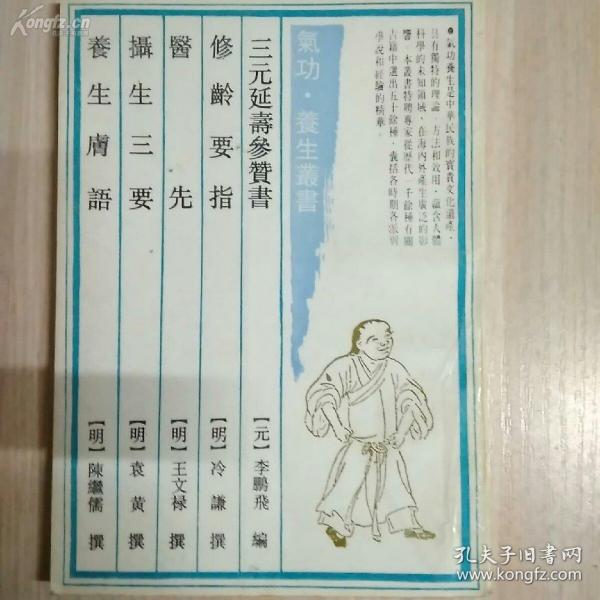 ●氣功養生是中華民族的寶貴文化遺產，
具有獨特的理論、方法和效用，蘊含人體
科學的未知領域，在海內外產生廣泛的影
響。本叢書特聘專家從歷代一千餘種有關
古籍中選出五十餘種，囊括各時期各派別
學說和經驗的精華。
氣功·養生叢書
三元延壽參贊書
【元】李鵬飛 編
修齡要指
【明】冷謙 撰
醫先
【明】王文祿 撰
攝生三要
【明】袁黃 撰
養生膚語
【明】陳繼儒 撰
Kongfz.cn
孔夫子旧书网
www.kongfz.com